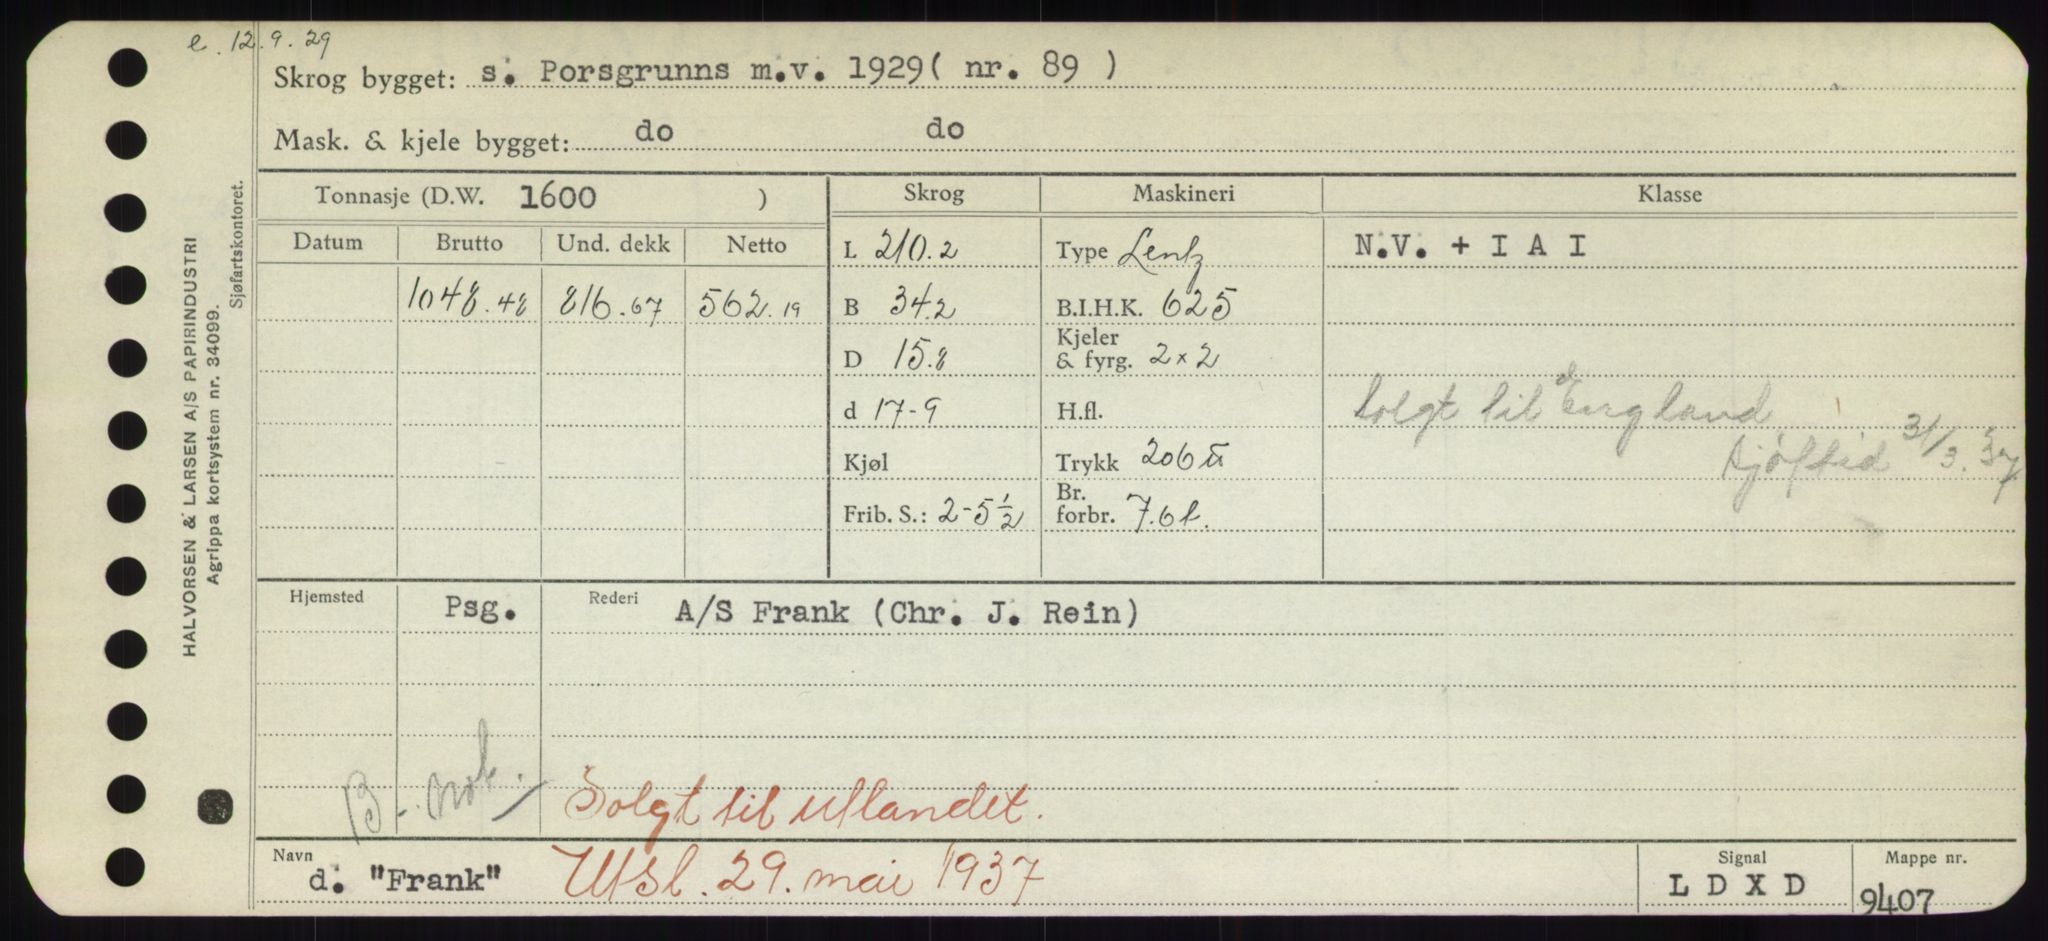 e. 12.9.29
Skrog bygget: s. Porsgrunns m.v. 1929( nr. 89 )
Mask. & kjele bygget: do do
Tonnasje (D.W. 1600 )
Skrog Maskineri Klasse
Datum Brutto Und. dekk Netto
L 210.2 Type Lentz N.V. + I A I
1048.48 816.67 562.19
B 34.2 B.I.H.K. 625
D 15.8 Kjeler & fyrg. 2×2
d 17-9 H.fl.
Solgt til England
Kjøl Trykk 206 ℔
sjøftid 31/3.37
Frib. S.: 2-5½ Br. forbr. 7.6 t.
Hjemsted Psg. Rederi A/S Frank (Chr. J. Rein)
B-not.
Solgt til utlandet.
Navn d. "Frank" Utsl. 29. mai 1937
Signal L D X D
Mappe nr. 9407
HALVORSEN & LARSEN A/S PAPIRINDUSTRI
Agrippa kortsystem nr. 34099.
Sjøfartskontoret.